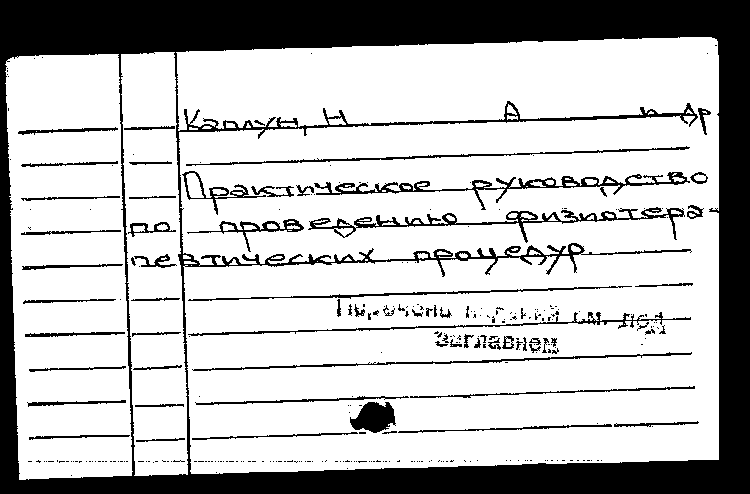 Каплун, Н А и др.
Практическое руководство
по проведению физиотера-
певтических процедур.
Перечень изданий см. под
заглавием